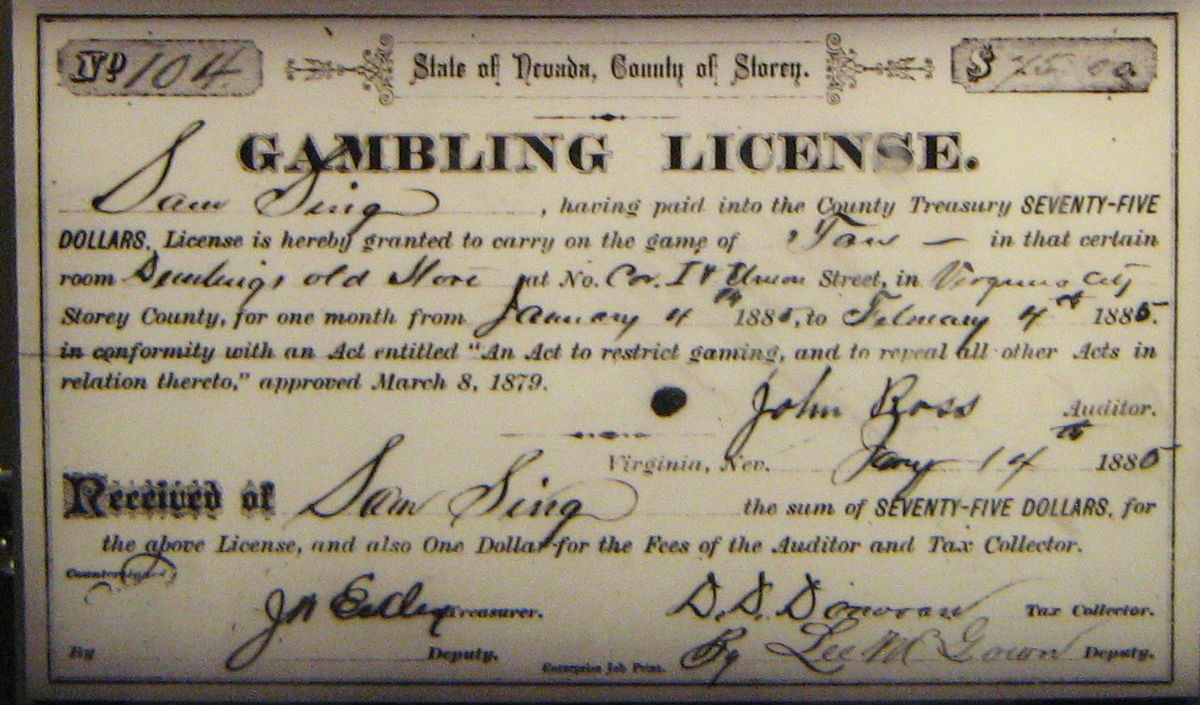 No 104 State of Nevada, County of Storey. $ 75.00
GAMBLING LICENSE.
Sam Sing, having paid into the County Treasury SEVENTY-FIVE
DOLLARS, License is hereby granted to carry on the game of "Tan — in that certain
room old Store at No. Cor. I & Union Street, in Virginia City
Storey County, for one month from January 4th 1885, to February 4th 1885.
in conformity with an Act entitled "An Act to restrict gaming, and to repeal all other Acts in
relation thereto," approved March 8, 1879.
John Ross Auditor.
Virginia, Nev. Jany 14th 1885
Received of Sam Sing the sum of SEVENTY-FIVE DOLLARS, for
the above License, and also One Dollar for the Fees of the Auditor and Tax Collector.
Countersigned
Treasurer. D. D. Donovan Tax Collector.
By Deputy. Enterprise Job Print. By Lee McGown Deputy.